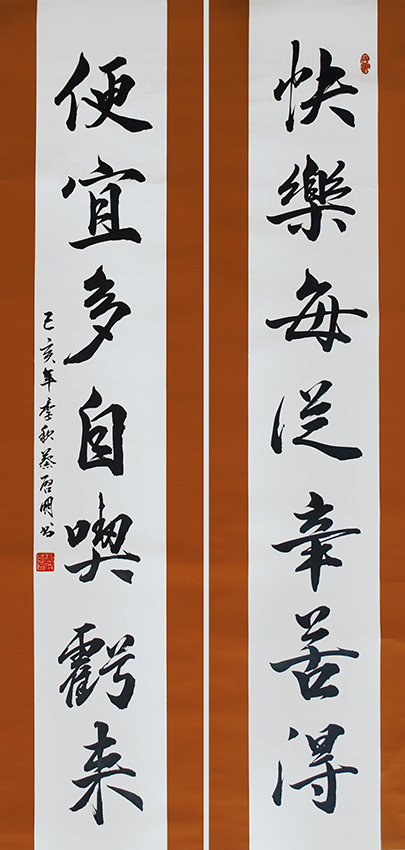 快樂每從辛苦得
便宜多自喫虧来
己亥年季秋蔡启明书